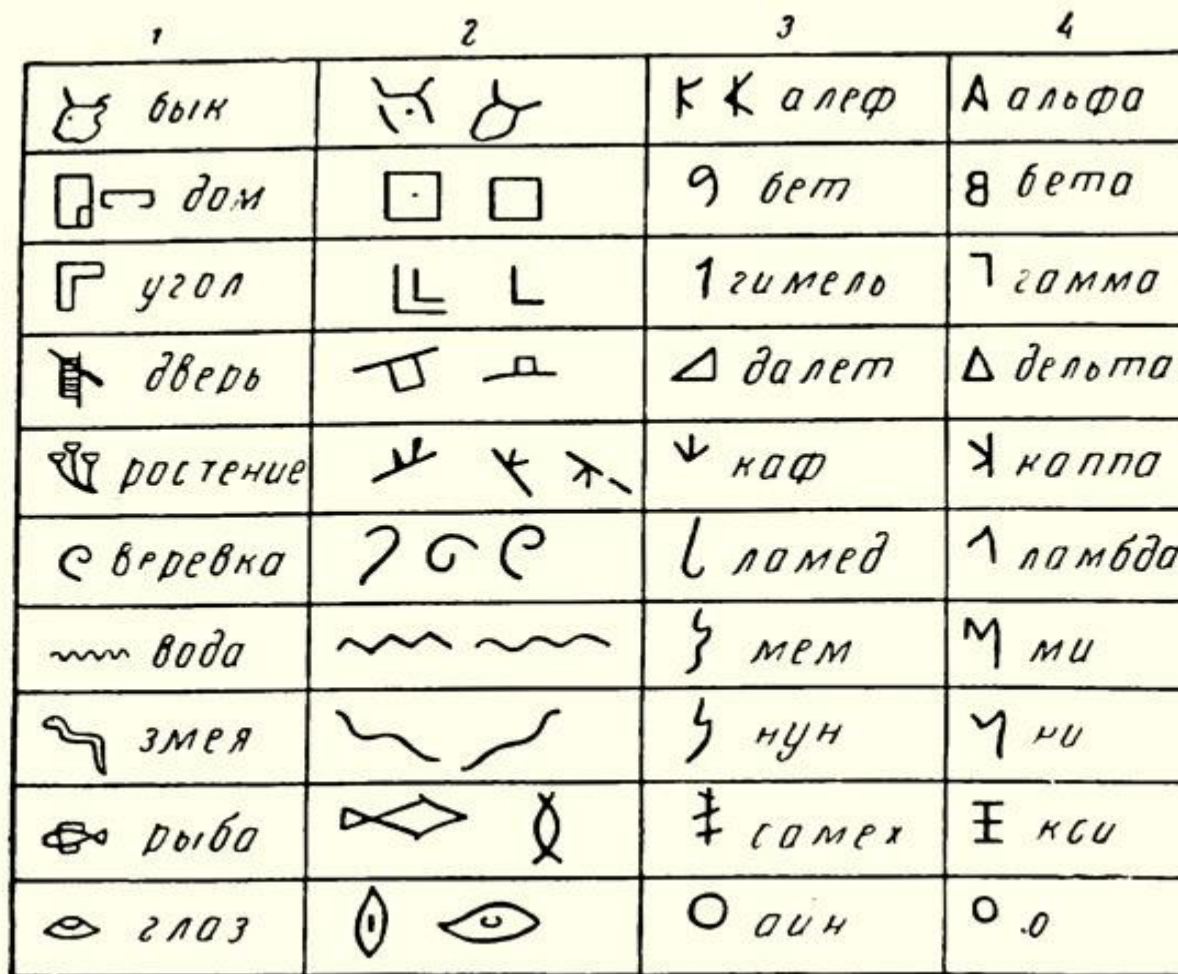 1 2 3 4
бык К К алеф А альфа
дом 9 бет 8 бета
угол 1 гимель ㄱ гамма
дверь ⊿ далет Δ дельта
ростение каф каппа
веревка ламед ламбда
вода мем ми
змея нун ни
рыба самех кси
глаз О аин О .о